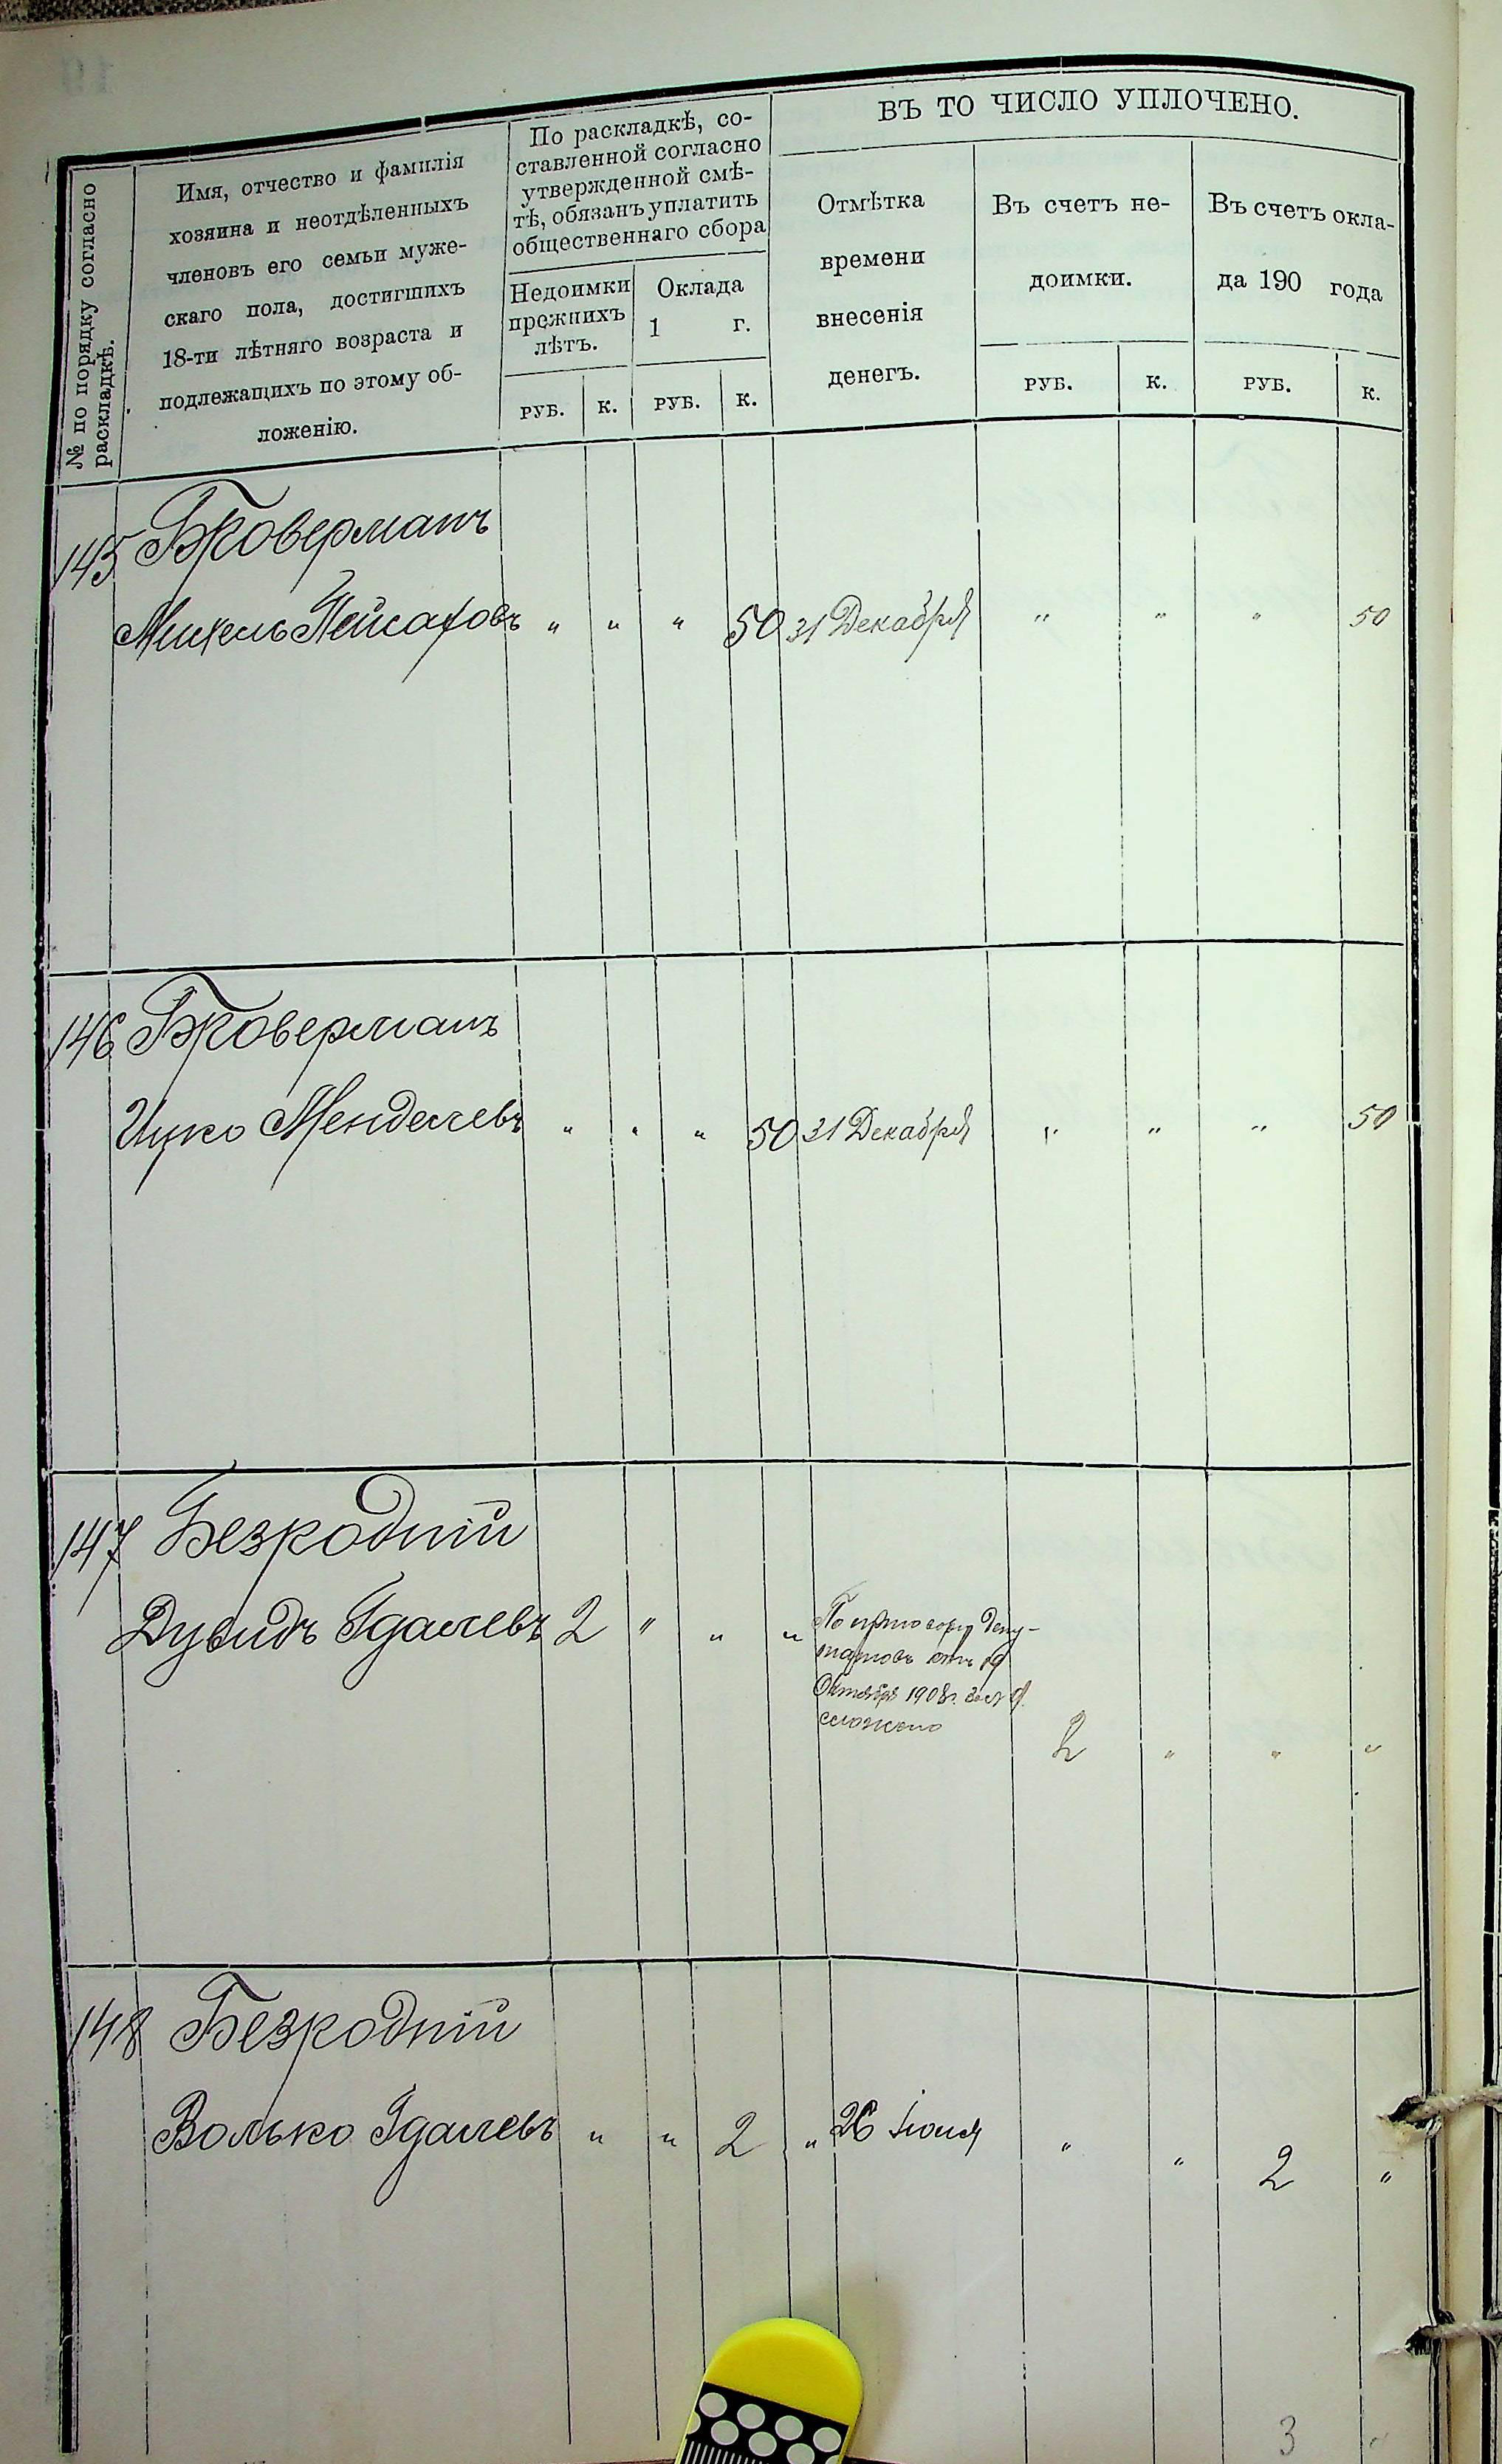 ВЪ ТО ЧИСЛО УПЛОЧЕНО.
№ по порядку согласно
раскладкѣ.
Имя, отчество и фамилія
хозяина и неотдѣленныхъ
членовъ его семьи муже-
скаго пола, достигшихъ
18-ти лѣтняго возраста и
подлежащихъ по этому об-
ложенію.
По раскладкѣ, со-
ставленной согласно
утвержденной смѣ-
тѣ, обязанъ уплатить
общественнаго сбора
Недоимки
прежнихъ
лѣтъ.
Оклада
1 г.
Отмѣтка
времени
внесенія
денегъ.
Въ счетъ не-
доимки.
Въ счетъ окла-
да 190 года
РУБ. К. РУБ. К. РУБ. К. РУБ. К.
145
Михель Пейсаховъ " " " 50 31 Декабря " " " 50
146
Ицко Менделевъ " " " 50 31 Декабря " " " 50
147 Безродній
Дувидъ Гдалевъ 2 " " " По приговору депу-
татовъ отъ 19
Октября 1908г. за №
сложено
2 " " "
148 Безродній
Волько Гдалевъ " " 2 " 26 Іюня " " 2 "
3